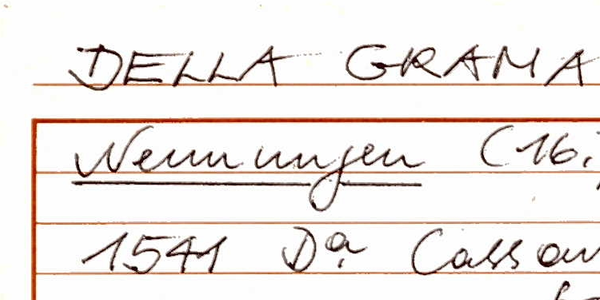 DELLA GRAMA
Nennungen (16.
1541 Dª Cassan